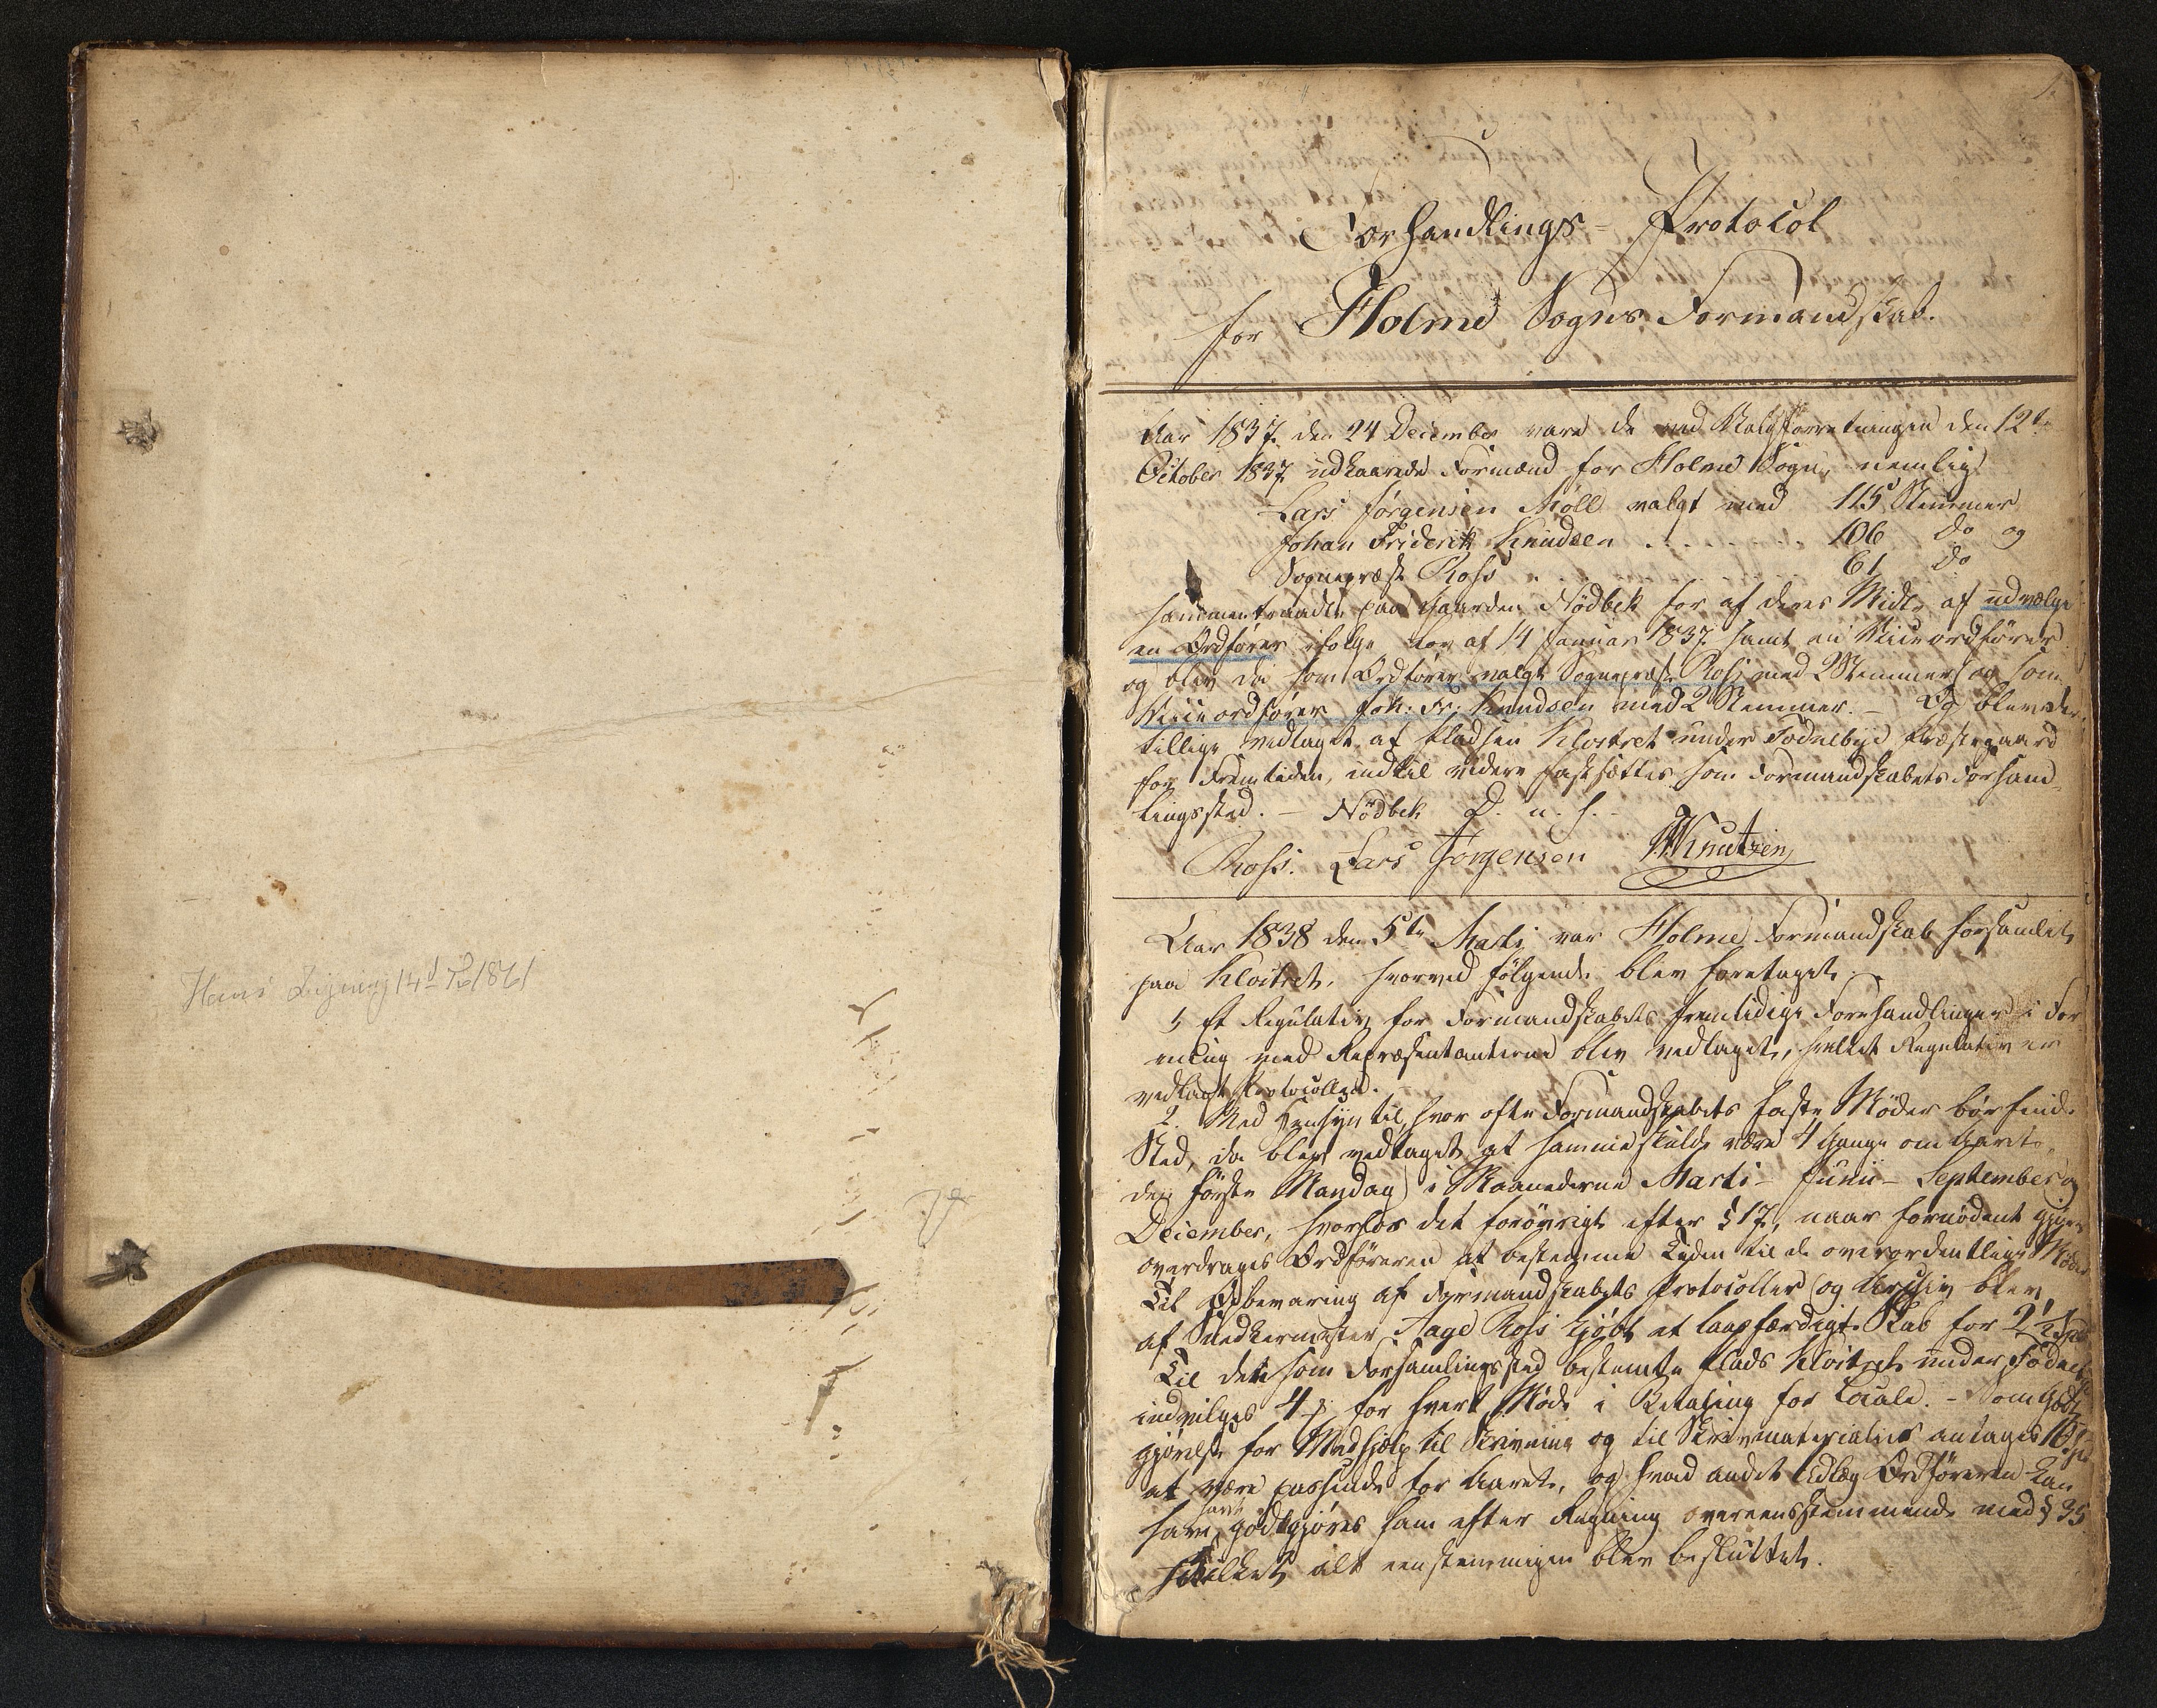 Hans Ligning 14d 1861
1.
Forhandlings-Protocol
for Holme Sogns Formandskab.
Aar 1837 den 24 December vare de ved Valgforretningen den 12te
October 1837 udkaarede Formænd for Holme Sogn, nemlig
Lars Jørgensen Möll valgt med 115 Stemmer
Johan Friderik Knudsen . . . . . . . 106 do og
Sognepræst Ross . . . . . 61 do
sammentraadte paa Gaarden Nödbek for af deres Midte at udvælge
en Ordfører ifølge Lov af 14 Januar 1837 samt en Viceordfører
og blev da som Ordfører valgt Sognepræst Ross med 2 Stemmer og som
Viceordfører Joh: Fr: Knudsen med 2 Stemmer. – Og blev der
tillige vedtaget at Pladsen Klostret under Födnebye Præstegaard
for Fremtiden, indtil videre fastsættes som Formandskabets Forhand-
lingssted. – Nödbek D. u. s. –
Ross. Lars Jørgensen Knutzen
Aar 1838 den 5te Marti var Holme Formandskab forsamlet
paa Klostret, hvorved følgende blev foretaget:
1, Et Regulativ for Formandskabets fremtidige Forhandlinger i For
ening med Repræsentanterne blev vedtaget, hvilket Regulativ er
vedlagt Protocollen. –
2. Med Hensyn til, hvor ofte Formandskabets faste Møder bør finde
Sted, da blev vedtaget at samme skulde være 4 Gange om Aaret,
den første Mandag i Maanederne Marti – Junii – September og
December, hvorhos det forøvrigt efter § 17, naar fornødent gjøres
overdrages Ordføreren at bestemme Tiden til de overordentlige Møder
Til Opbevaring af Formandskabets Protocoller og Archiv blev
af Snedkermester Aage Ross kjøbt et laasfærdigt Skab for 2½ Spd
Til det som Forsamlingssted bestemte Plads Klostret under Födneb
indvilges 4 ß for hvert Møde i Betaling for Locale. – Som Godt
gjørelse for Medhjælp til Skrivning og til Skrivmaterialier antages 10 Spd
at være passende for Aaret, og hvad andet Udlæg Ordføreren kan
have havt godtgjøres ham efter Regning overeensstemmende med § 35
Hvilket alt eenstemmigen blev besluttet.